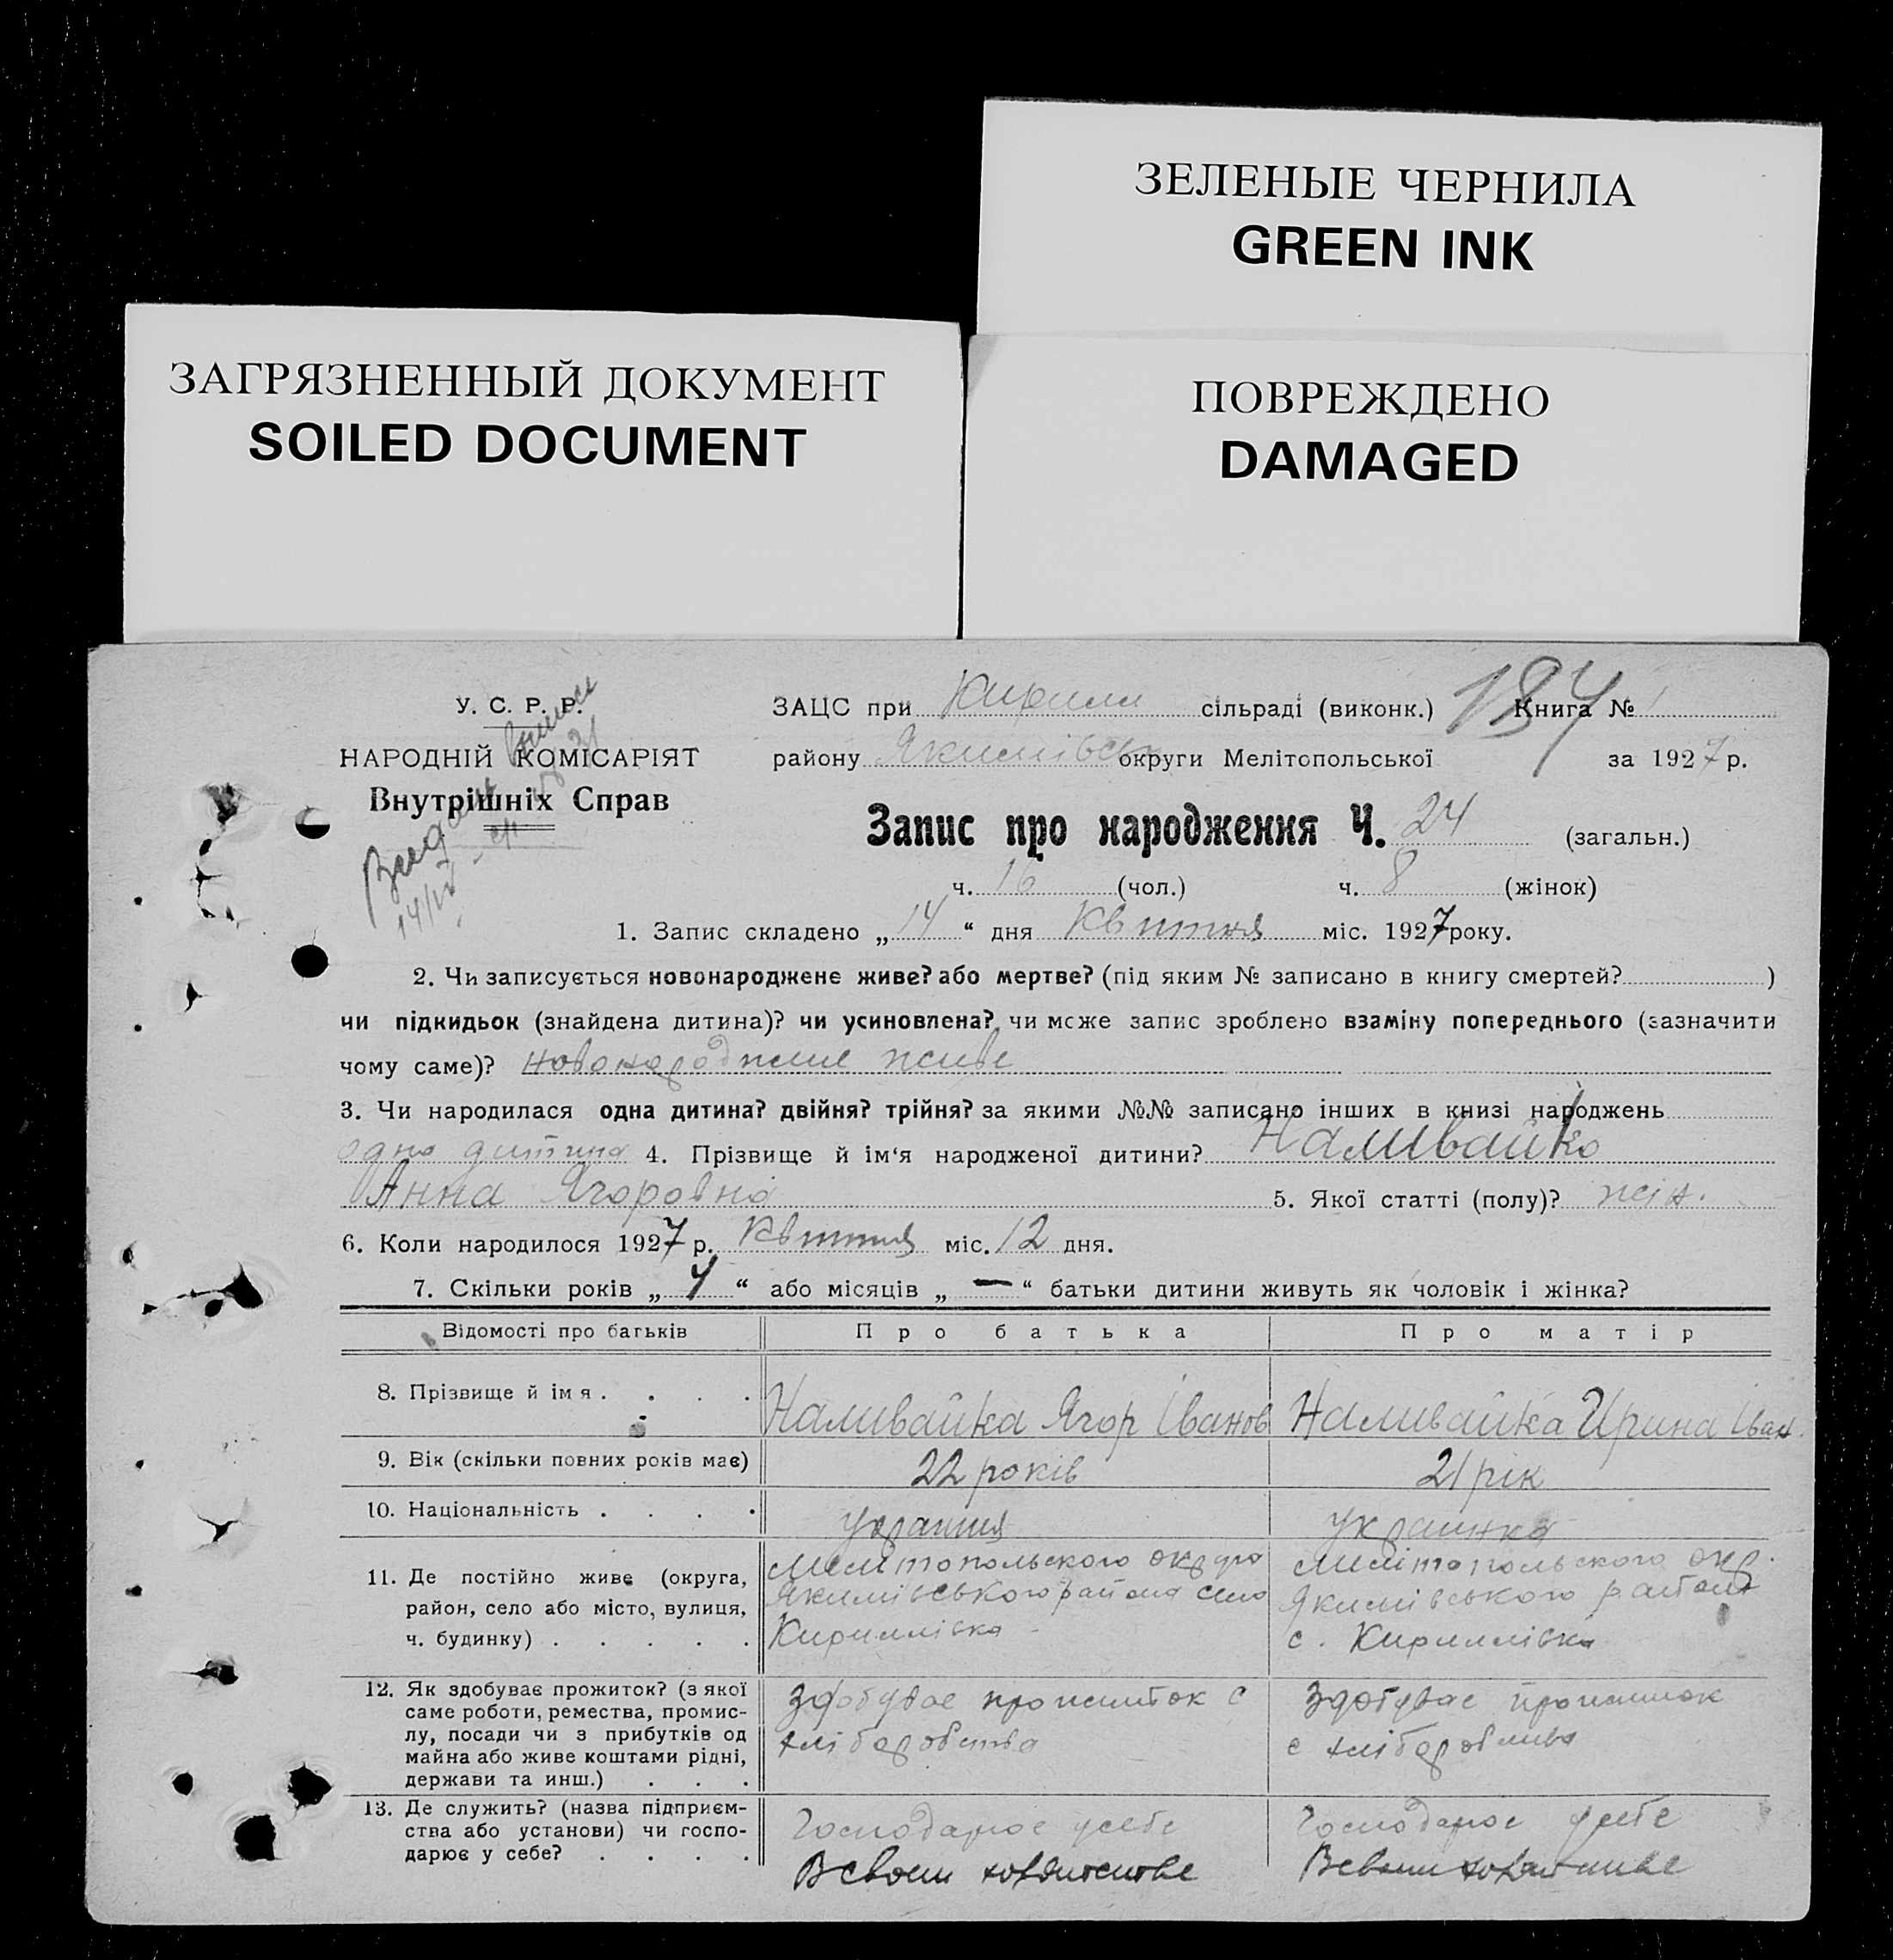 ЗЕЛЕНЫЕ ЧЕРНИЛА
GREEN INK
ЗАГРЯЗНЕННЫЙ ДОКУМЕНТ
SOILED DOCUMENT
ПОВРЕЖДЕНО
DAMAGED
У. С. Р. Р.
НАРОДНІЙ КОМІСАРІЯТ
Внутрішніх Справ
ЗАЦС при Кирили сільраді (виконк.) Книга № 1
району Якимівськ округи Мелітопольської за 1927 р.
Запис про народження Ч. 24 (загальн.)
ч. 16 (чол.) ч. 8 (жінок)
1. Запис складено „14“ дня Квітня міс. 1927 року.
2. Чи записується новонароджене живе? або мертве? (під яким № записано в книгу смертей? )
чи підкидьок (знайдена дитина)? чи усиновлена? чи може запис зроблено взаміну попереднього (зазначити
чому саме)? новонароджене живе
3. Чи народилася одна дитина? двійня? трійня? за якими №№ записано інших в книзі народжень
одна дитина 4. Прізвище й ім‘я народженої дитини? Наливайко
Анна Ягоровна 5. Якої статті (полу)? жін.
6. Коли народилося 1927 р. Квітня міс. 12 дня.
7. Скільки років „4“ або місяців „—“ батьки дитини живуть як чоловік і жінка?
Відомості про батьків Про батька Про матір
8. Прізвище й імя . . . . Наливайка Ягор Іванов Наливайка Ирина Іван.
9. Вік (скільки повних років має) 22 років 21 рік
10. Національність . . . . україниц украинка
11. Де постійно живе (округа, Мелітопольского округа Мелітопольского окр.
район, село або місто, вулиця, Якимівського района село Якимівського района
ч. будинку) . . . . . Кириллівка с. Кириллівка
12. Як здобуває прожиток? (з якої Здобувае прожиток с Здобувае прожиток
саме роботи, ремества, промис-
лу, посади чи з прибутків од хліборобства с хліборобства
майна або живе коштами рідні,
держави та инш.) . . .
13. Де служить? (назва підприєм-
ства або установи) чи госпо- Господарює усебе Господарює усебе
дарює у себе? . . . .